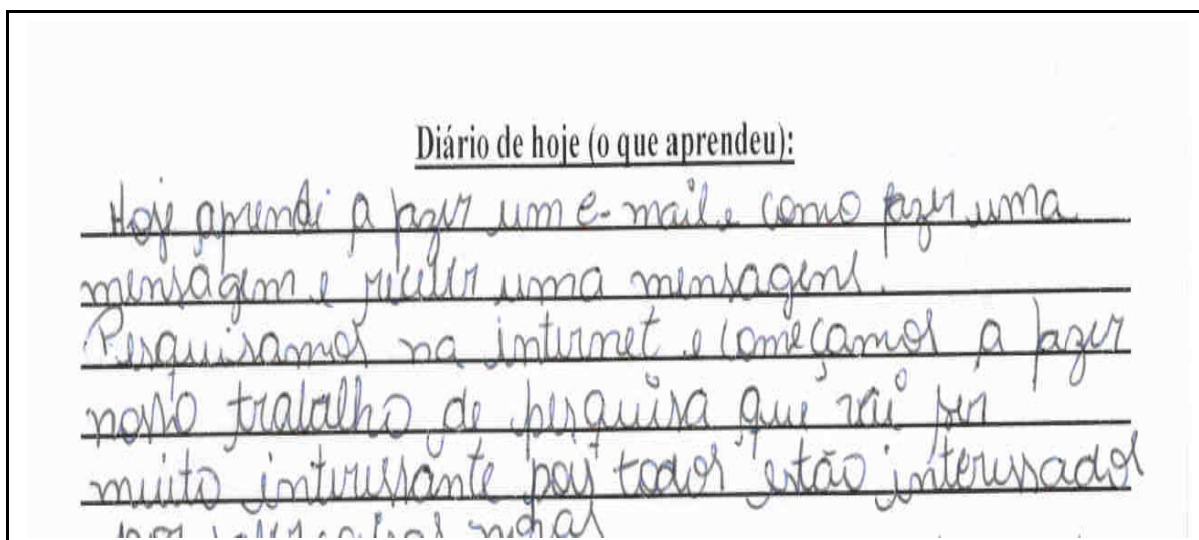 Diário de hoje (o que aprendeu):
Hoje aprendi a fazer um e-mail e como fazer uma
mensagem e receber uma mensagens.
Pesquisamos na internet e começamos a fazer
nosso trabalho de pesquisa que vai ser
muito interessante pois todos estão interessados
por